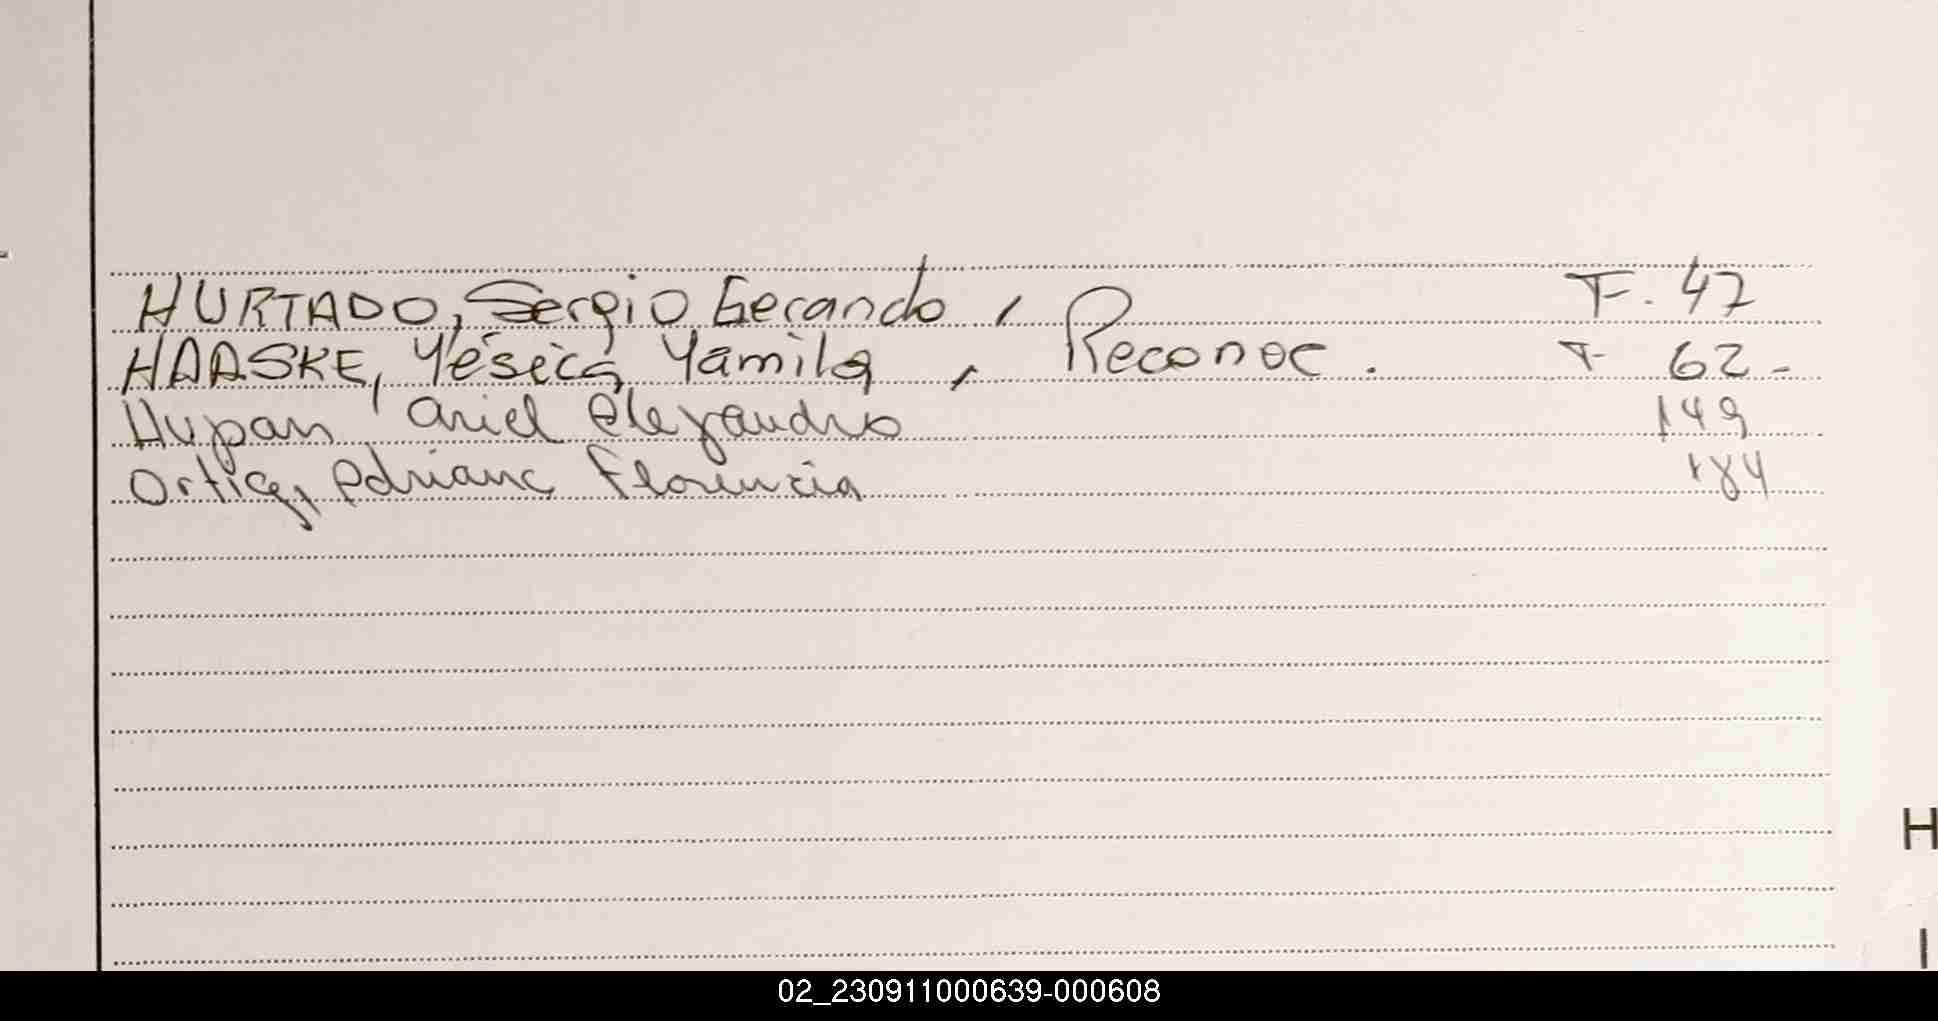 HURTADO, Sergio Gerardo,
F. 47
HAASKE, Yésica Yamila, Reconoc.
F 62-
Hupan Ariel Alejandro
149
Ortiz, Adriana Florencia
184
H
I
02_230911000639-000608